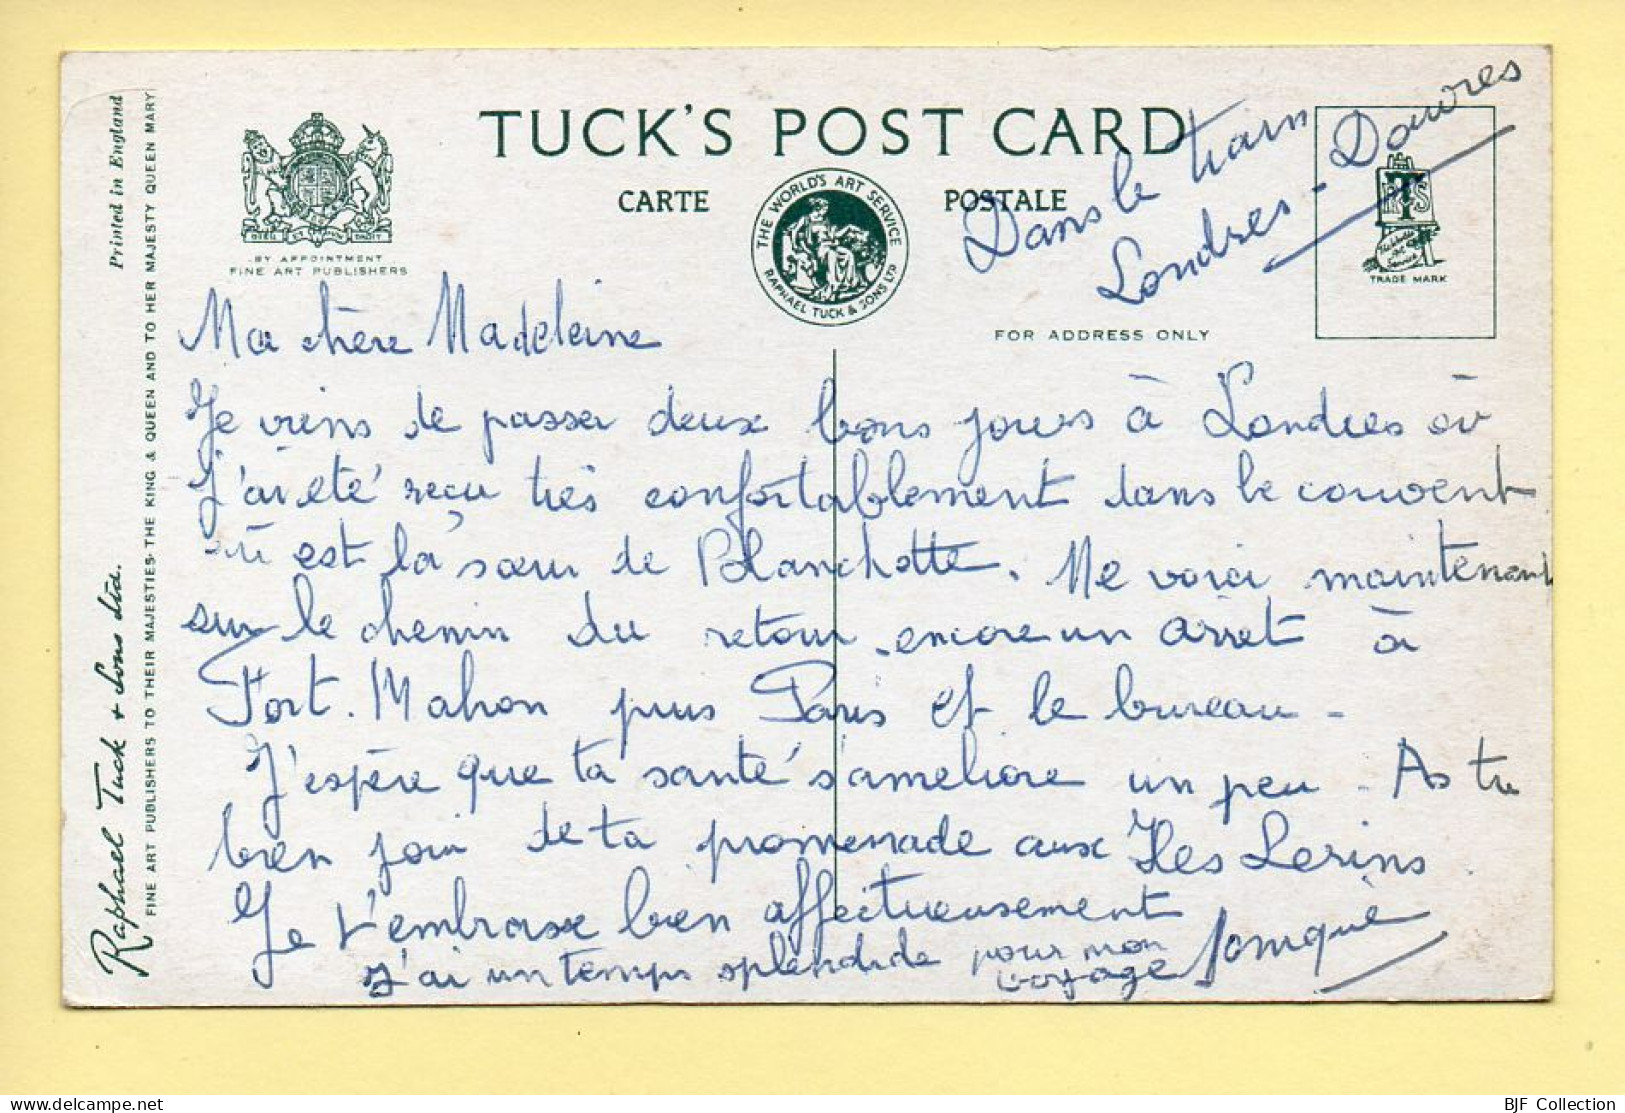 TUCK'S POST CARD
CARTE POSTALE
THE WORLD'S ART SERVICE
RAPHAEL TUCK & SONS LTD
DIEU ET MON DROIT
BY APPOINTMENT
FINE ART PUBLISHERS
FOR ADDRESS ONLY
RTS
TRADE MARK
Printed in England
Raphael Tuck & Sons Ltd.
FINE ART PUBLISHERS TO THEIR MAJESTIES THE KING & QUEEN AND TO HER MAJESTY QUEEN MARY
Dans le train
Londres - Douvres
Ma chère Madeleine
Je viens de passer deux bons jours à Londres où
j'ai été reçu très confortablement dans le couvent
où est la sœur de Blanchotte. Me voici maintenant
sur le chemin du retour - encore un arret à
Fort. Mahon puis Paris et le bureau -
J'espère que ta santé s'améliore un peu - As tu
bien joui de ta promenade aux Iles Lerins
Je t'embrasse bien affectueusement
J'ai un temps splendide pour mon
voyage
BJF Collection